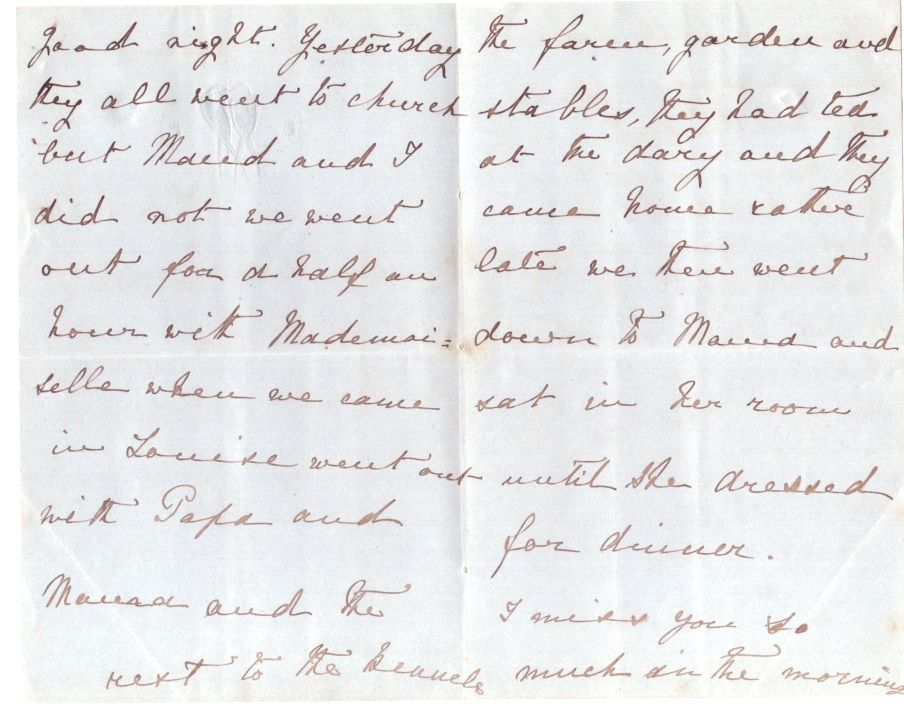 good night. Yesterday
they all went to church
but Maud and I
did not we went
out for a half an
hour with Mademoi=
selle when we came
in Louise went out
with Papa and
Mama and the
rest to the kennels
the farm, garden and
stables, they had tea
at the dary and they
came home rather
late we then went
down to Maud and
sat in her room
until she dressed
for dinner.
I miss you so
much in the morning